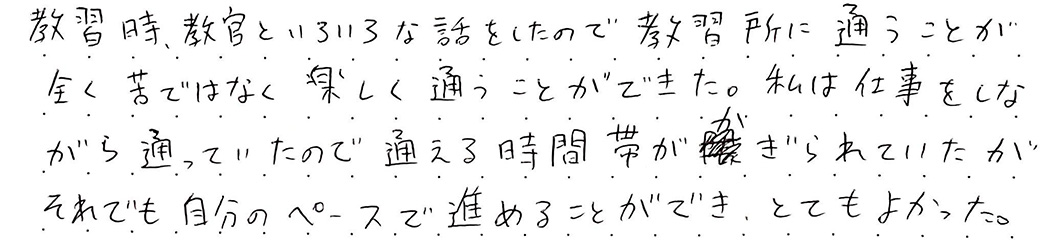 教習時、教官といろいろな話をしたので教習所に通うことが
全く苦ではなく楽しく通うことができた。私は仕事をしな
がら通っていたので通える時間帯がかぎられていたが
それでも自分のペースで進めることができ、とてもよかった。